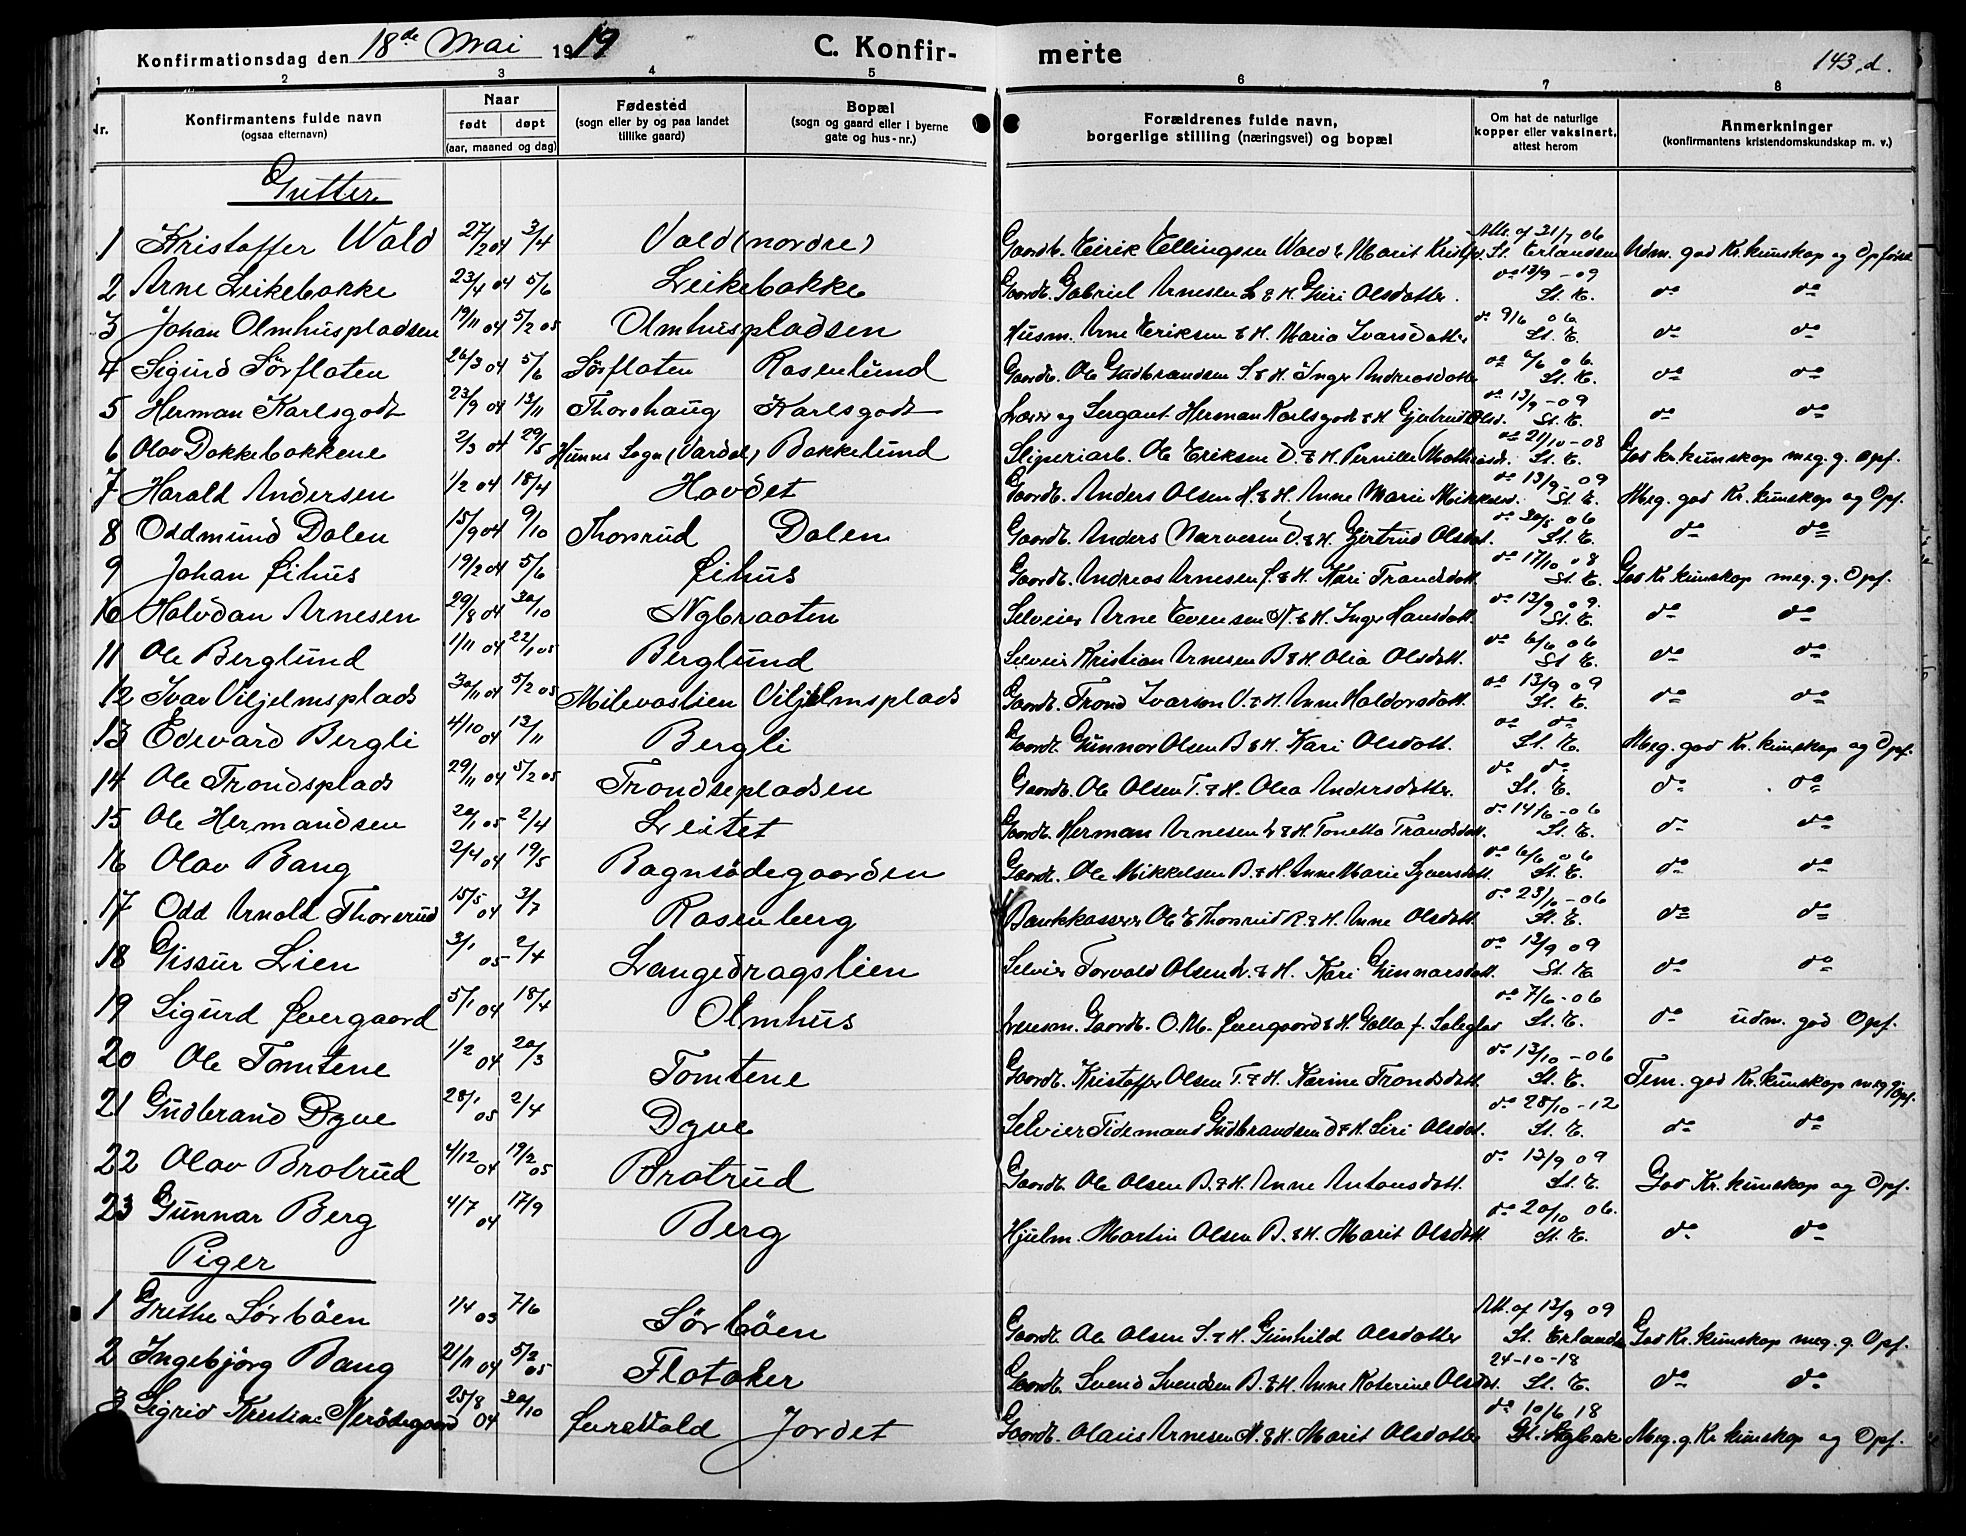 Konfirmationsdag den 18de Mai 1919 C. Konfir- merte 143.d.
1 2 3 4 5 6 7 8
Nr. Konfirmantens fulde navn (ogsaa efternavn) Naar født døpt (aar, maaned og dag) Fødested (sogn eller by og paa landet tillike gaard) Bopæl (sogn og gaard eller i byerne gate og hus-nr.) Forældrenes fulde navn, borgerlige stilling (næringsvei) og bopæl Om hat de naturlige kopper eller vaksinert, attest herom Anmerkninger (konfirmantens kristendomskundskap m. v.)
Gutter
1 Kristoffer Wald 27/2 04 3/4 Vald (nordre) Gaardb. Eirik Ellingsen Wald & Marit Att. af 21/7 06 St. Erlandsen Udm. god Kr. kunskap og Opförsel
2 Arne Leikebakke 23/4 04 5/6 Leikebakke Gaardb. Gabriel Arnesen L & H. Guri Olsdatter. do 13/9 - 09 St. E. do do
3 Johan Olmhuspladsen 19/11 04 5/2 05 Olmhuspladsen Husm. Arne Eriksen & H. Maria Ivarsdatter do 9/6 06 St. E. do do
4 Sigurd Sörflaten 26/3 04 5/6 Sörflaten Rosenlund Gaardb. Ole Gudbrandsen S. & H. Inger Andreasdatter do 6/6 06. St. E. do do
5 Herman Karlsgodt 23/9 04 13/11 Thorshaug Karlsgodt Lærer og Sergant Herman Karlsgodt & H. Gjertrud Olsd. do 13/9 - 09 St. E. do do
6 Olav Dokkebakkene 2/3 04 29/5 Hunns Sogn (Vardal) Bakkelund Sliperiarb. Ole Eriksen D. & H. Pernille Mathiasd. do 21/10 - 08 St. E. God kr. kunskap meg. g. Opf.
7 Harald Andersen 1/2 04 18/4 Hovdet Gaardb. Anders Olsen H. & H. Anne Marie Mikkelsd. do 13/9 - 09 St. E. Meg. god Kr. kunskap og Opf.
8 Oddmund Dalen 15/9 04 9/10 Thonrud Dalen Gaardb. Anders Narvesen D. & H. Gjertrud Olsdat. do 30/5 06 St. E. do do
9 Johan Öihus 19/2 04 5/6 Öihus Gaardb. Andreas Arnesen Ö. & H. Kari Trondsdatt. do 17/10 08 St. E. God Kr. kunskap meg. g. Opf.
10 Halvdan Arnesen 29/8 04 30/10 Nybraaten Selveier Arne Evensen N. & H. Inger Hansdatt. do 13/9 09. St. E. do do
11 Ole Berglund 1/11 04 22/1 05 Berglund Selveier Kristian Arnesen B & H. Olia Olsdatt. do 6/6 06 St. E. do do
12 Ivar Viljelmsplads 30/11 04 5/2 05 Milevaslien Viljelmsplads Gaardb. Trond Ivarson V. & H. Anne Haldorsdatt. do 13/9 09 St. E. do do
13 Edevard Bergli 4/10 04 13/11 Bergli Gaardb. Gunnar Olsen B & H. Kari Olsdatt. do do St. E. Meg. god Kr. kunskap og Opf.
14 Ole Trondsplads 29/11 04 5/2 05 Trondspladsen Gaardb. Ole Olsen T. & H. Olea Andersdatter. do do St. E. do do
15 Ole Hermandsen 20/1 05 2/4 Leitet Gaardb. Herman Arnesen L & H. Tonetta Trondsdatt. do 14/6 - 06 St. E. do do
16 Olav Bang 2/4 04 19/5 Bagnsödegaarden Gaardb. Ole Mikkelsen B. & H. Anne Marie Syversdatt. do 6/6 06 St. E. do do
17 Odd Arnold Thonrud 15/5 04 3/7 Rosenberg Bankkasserer Ole E Thonrud R. & H. Anne Olsdatt. do 23/10 - 06 St. E. do do
18 Gissur Lien 3/1 05 2/4 Langedragslien Selveier Torvald Olsen L. & H. Kari Gunnarsdatt. do 13/9 09 St. E. do do
19 Sigurd Övergaard 5/1 04 18/4 Olmhus Lensm. Gaardb. O. M. Övergaard & H. f. do 7/6 - 06 St. E. do udm. god Opf.
20 Ole Tomtene 1/2 04 20/3 Tomtene Gaardb. Kristoffer Olsen T. & H. Karine Trondsdatt. do 13/10 - 06 St. E. Tem. god Kr. kunskap meg g. Opf.
21 Gudbrand Dyve 28/1 05 2/4 Dyve Selvier Tidemand Gudbrandsen D & H. Siri Olsdat. do 28/10 - 12 St. E. do do
22 Olav Brotrud 4/12 04 19/2 05 Brotrud Gaardb. Ole Olsen B. & H. Anne Antonsdatt. do 13/9 09 St. E. God Kr. kunskap og Opf.
23 Gunnar Berg 4/7 04 17/9 Berg Hjulm. Martin Olsen B. & H. Marit Olsdatt. do 20/10 06. St. E. do do
Piger
1 Grethe Sörböen 1/4 03 7/6 Sörböen Gaardb. Ole Olsen S. & H. Gunhild Olsdatter Att. af 13/9 09 St. Erlands. God Kr. kunskap meg. g. Opf.
2 Ingebjörg Bang 21/11 04 5/2 05 Flataker Gaardb. Svend Svendsen B. & H. Anne Katerine Olsdat. 24-10-18 St. E. do do
3 Sigrid Kristine Nerödegaard 25/8 04 30/10 Övrevold Jordet Gaardb. Olaus Arnesen N. & H. Marit Olsdatter do 10/6 18 Meg. g. Kr kunskap og Opf.